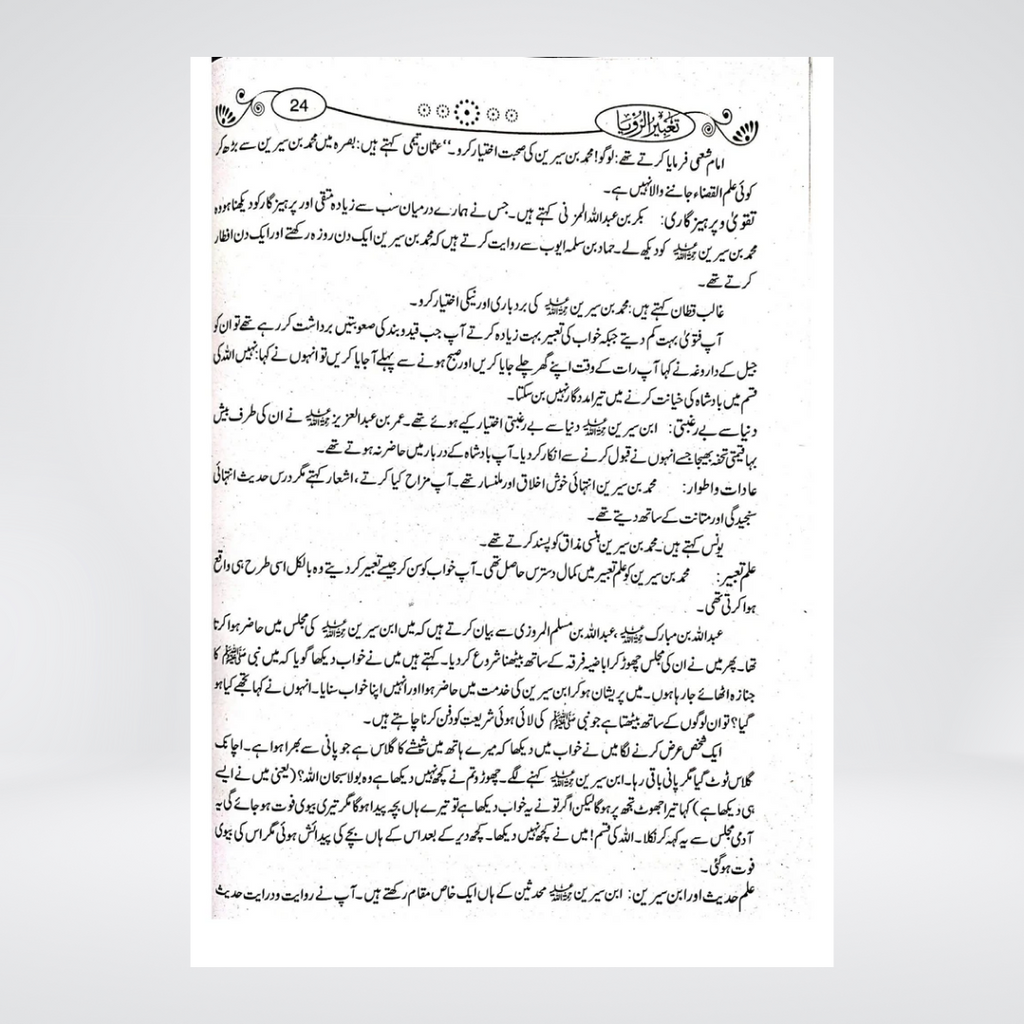 24
تعبیر الرؤیا
امام شعمی فرمایا کرتے تھے: لوگو! محمد بن سیرین کی صحبت اختیار کرو۔‘‘ عثمان تیمی کہتے ہیں: بصرہ میں محمد بن سیرین سے بڑھ کر
کوئی علم القضاء جاننے والا نہیں ہے۔
تقویٰ و پرہیزگاری: بکر بن عبداللہ المزنی کہتے ہیں۔ جس نے ہمارے درمیان سب سے زیادہ متقی اور پرہیزگار کو دیکھنا ہو وہ
محمد بن سیرین رحمۃ اللہ علیہ کو دیکھ لے۔ حماد بن سلمہ ایوب سے روایت کرتے ہیں کہ محمد بن سیرین ایک دن روزہ رکھتے اور ایک دن افطار
کرتے تھے۔
غالب قطان کہتے ہیں: محمد بن سیرین رحمۃ اللہ علیہ کی بردباری اور نیکی اختیار کرو۔
آپ فتویٰ بہت کم دیتے جبکہ خواب کی تعبیر بہت زیادہ کرتے آپ جب قید و بند کی صعوبتیں برداشت کر رہے تھے تو ان کو
جیل کے داروغہ نے کہا آپ رات کے وقت اپنے گھر چلے جایا کریں اور صبح ہونے سے پہلے آ جایا کریں تو انہوں نے کہا: نہیں اللہ کی
قسم میں بادشاہ کی خیانت کرنے میں تیرا مددگار نہیں بن سکتا۔
دنیا سے بے رغبتی: ابن سیرین رحمۃ اللہ علیہ دنیا سے بے رغبتی اختیار کیے ہوئے تھے۔ عمر بن عبدالعزیز رحمۃ اللہ علیہ نے ان کی طرف بیش
بہا قیمتی تحفہ بھیجا جسے انہوں نے قبول کرنے سے انکار کر دیا۔ آپ بادشاہ کے دربار میں حاضر نہ ہوتے تھے۔
عادات و اطوار: محمد بن سیرین انتہائی خوش اخلاق اور ملنسار تھے۔ آپ مزاح کیا کرتے، اشعار کہتے مگر درس حدیث انتہائی
سنجیدگی اور متانت کے ساتھ دیتے تھے۔
یونس کہتے ہیں۔ محمد بن سیرین ہنسی مذاق کو پسند کرتے تھے۔
علم تعبیر: محمد بن سیرین کو علم تعبیر میں کمال دسترس حاصل تھی۔ آپ خواب کو سن کر جیسے تعبیر کر دیتے وہ بالکل اسی طرح ہی واقع
ہوا کرتی تھی۔
عبداللہ بن مبارک رحمۃ اللہ علیہ، عبداللہ بن مسلم المروزی سے بیان کرتے ہیں کہ میں ابن سیرین رحمۃ اللہ علیہ کی مجلس میں حاضر ہوا کرتا
تھا۔ پھر میں نے ان کی مجلس چھوڑ کر اباضیہ فرقہ کے ساتھ بیٹھنا شروع کر دیا۔ کہتے ہیں میں نے خواب دیکھا گویا کہ میں نبی ﷺ کا
جنازہ اٹھائے جا رہا ہوں۔ میں پریشان ہو کر ابن سیرین کی خدمت میں حاضر ہوا اور انہیں اپنا خواب سنایا۔ انہوں نے کہا تجھے کیا ہو
گیا؟ تو ان لوگوں کے ساتھ بیٹھتا ہے جو نبی ﷺ کی لائی ہوئی شریعت کو دفن کرنا چاہتے ہیں۔
ایک شخص عرض کرنے لگا میں نے خواب میں دیکھا کہ میرے ہاتھ میں شیشے کا گلاس ہے جو پانی سے بھرا ہوا ہے۔ اچانک
گلاس ٹوٹ گیا مگر پانی باقی رہا۔ ابن سیرین رحمۃ اللہ علیہ کہنے لگے۔ چھوڑو تم نے کچھ نہیں دیکھا ہے وہ بولا سبحان اللہ؟ (یعنی میں نے ایسے
ہی دیکھا ہے) کہا تیرا جھوٹ تجھ پر ہوگا لیکن اگر تو نے یہ خواب دیکھا ہے تو تیرے ہاں بچہ پیدا ہوگا مگر تیری بیوی فوت ہو جائے گی یہ
آدمی مجلس سے یہ کہہ کر نکلا۔ اللہ کی قسم! میں نے کچھ نہیں دیکھا۔ کچھ دیر کے بعد اس کے ہاں بچے کی پیدائش ہوئی مگر اس کی بیوی
فوت ہو گئی۔
علم حدیث اور ابن سیرین: ابن سیرین رحمۃ اللہ علیہ محدثین کے ہاں ایک خاص مقام رکھتے ہیں۔ آپ نے روایت و درایت حدیث